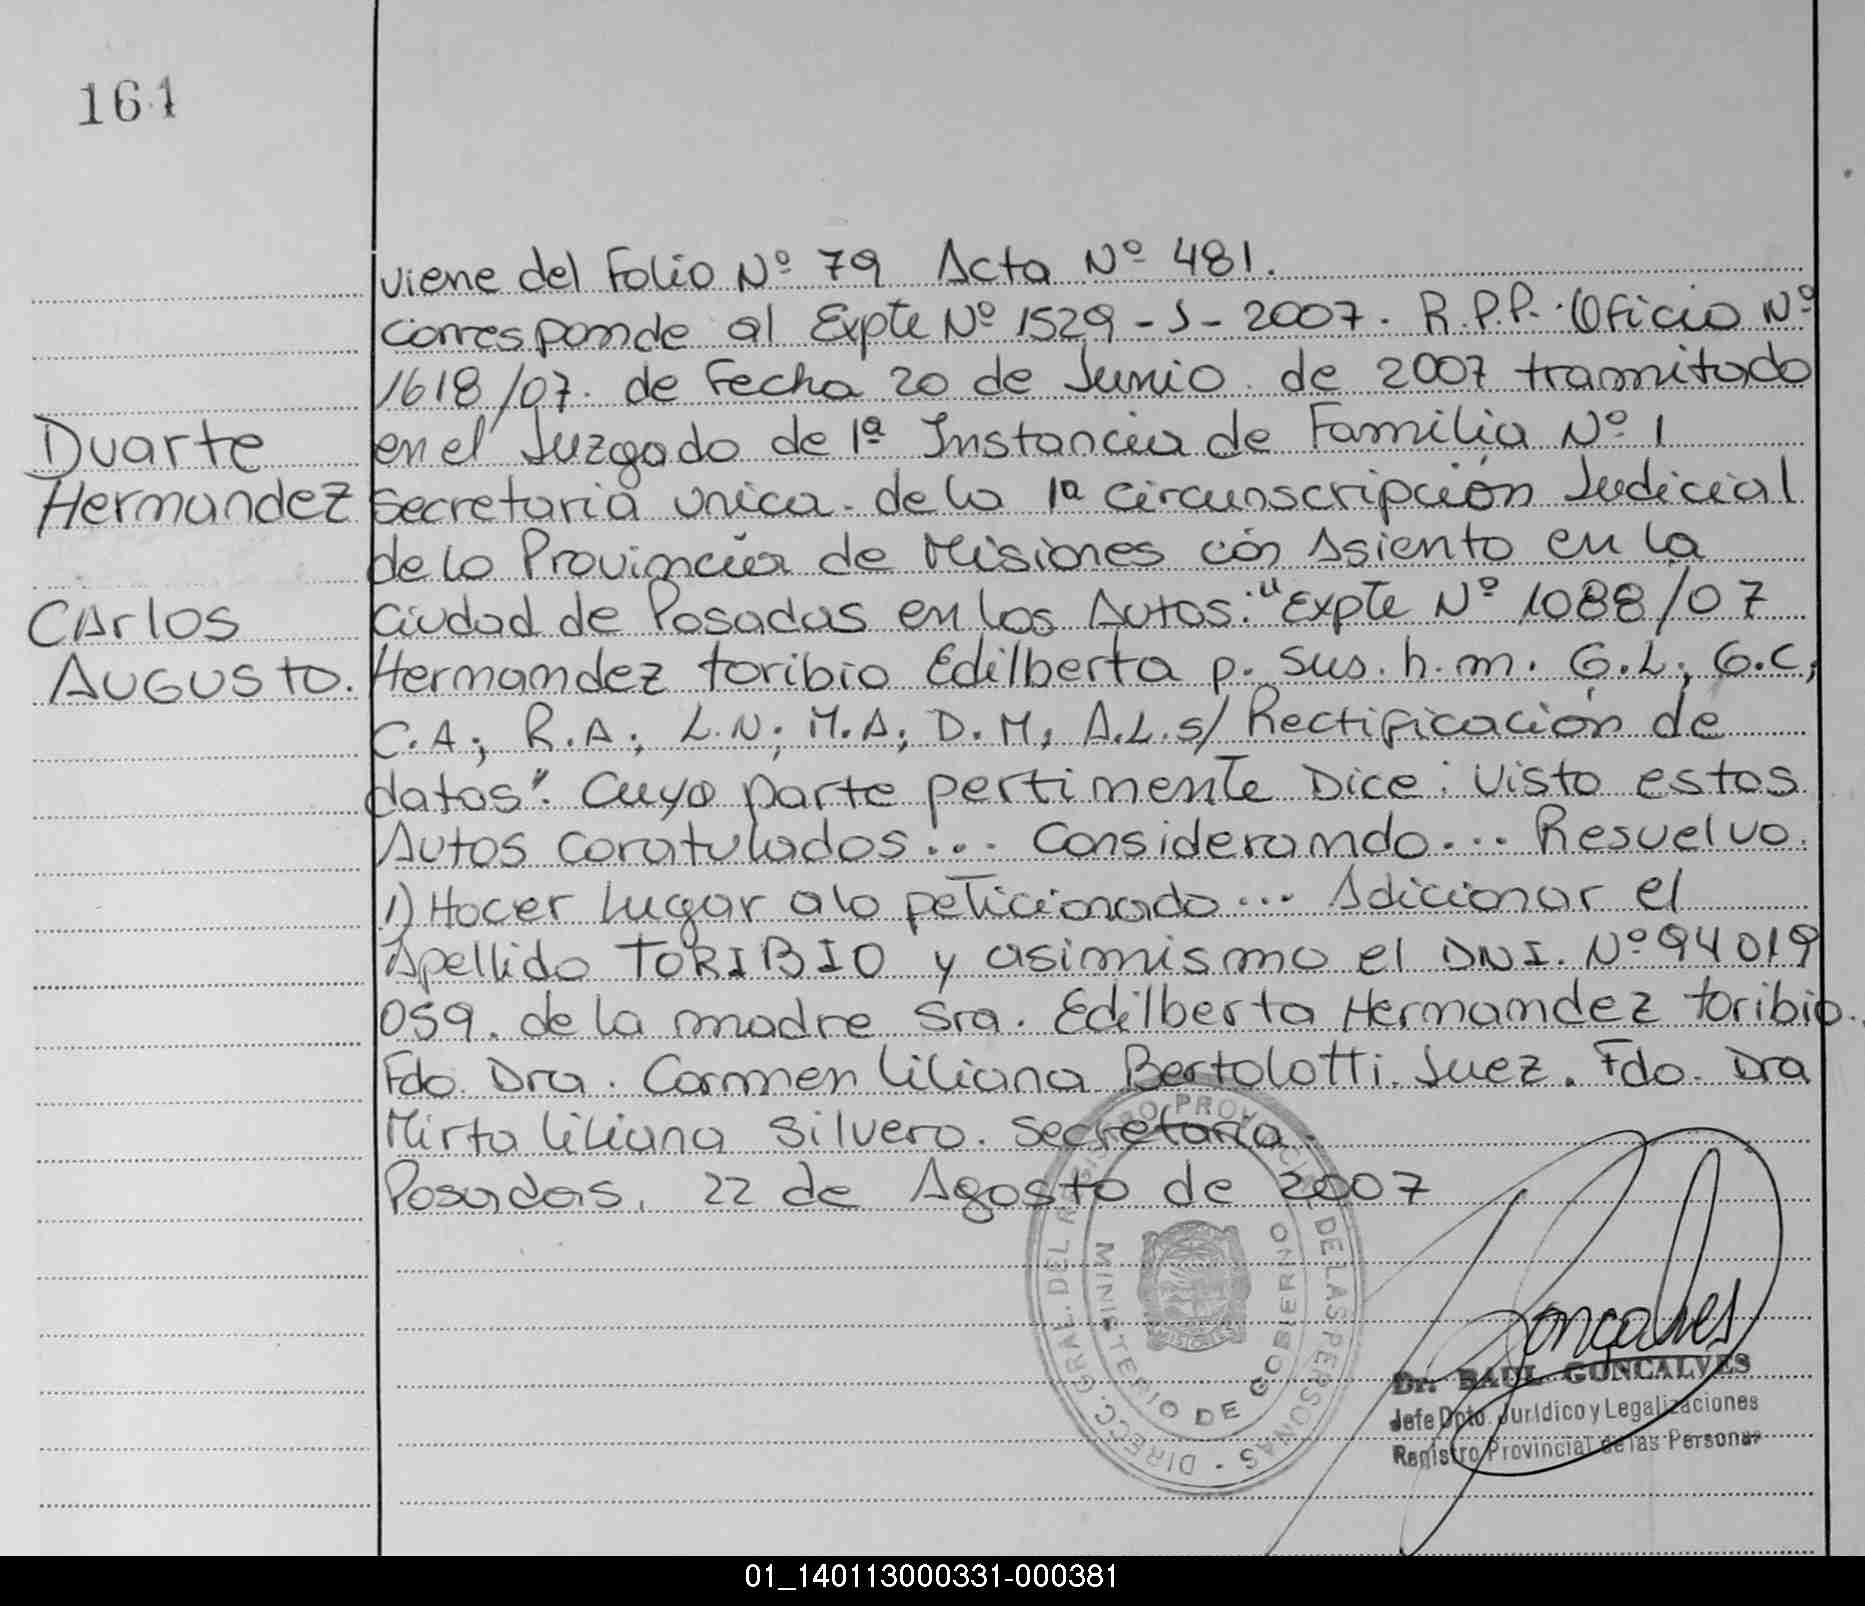 161
viene del Folio Nº 79 Acta Nº 481.
corresponde al Expte Nº 1529-J-2007. R.P.P. Oficio Nº
1618/07. de Fecha 20 de Junio de 2007 tramitado
Duarte
en el Juzgado de 1ª Instancia de Familia Nº 1
Hernandez
secretaria unica. de la 1ª circunscripción Judicial
de la Provincia de Misiones con Asiento en la
Carlos
ciudad de Posadas en los Autos: "Expte Nº 1088/07
Augusto.
Hernandez toribio Edilberta p. sus. h. m. G.L; G.C;
C.A; R.A; L.N; M.A; D.M; A.L. s/ Rectificación de
datos". Cuya parte pertinente Dice: Visto estos
Autos caratulados... Considerando... Resuelvo.
1) Hacer lugar a lo peticionado... Adicionar el
Apellido TORIBIO y asimismo el DNI. Nº 94019
059. de la madre Sra. Edilberta Hernandez toribio.
Fdo. Dra. Carmen Liliana Bertolotti. Juez. Fdo. Dra
Mirta Liliana Silvero. Secretaria.
Posadas, 22 de Agosto de 2007
DIRECC. GRAL. DEL REGISTRO PROVINCIAL DE LAS PERSONAS
MINISTERIO DE GOBIERNO
MISIONES
Goncalves
Dr. RAUL GONCALVES
Jefe Dpto. Jurídico y Legalizaciones
Registro Provincial de las Personas
01_140113000331-000381